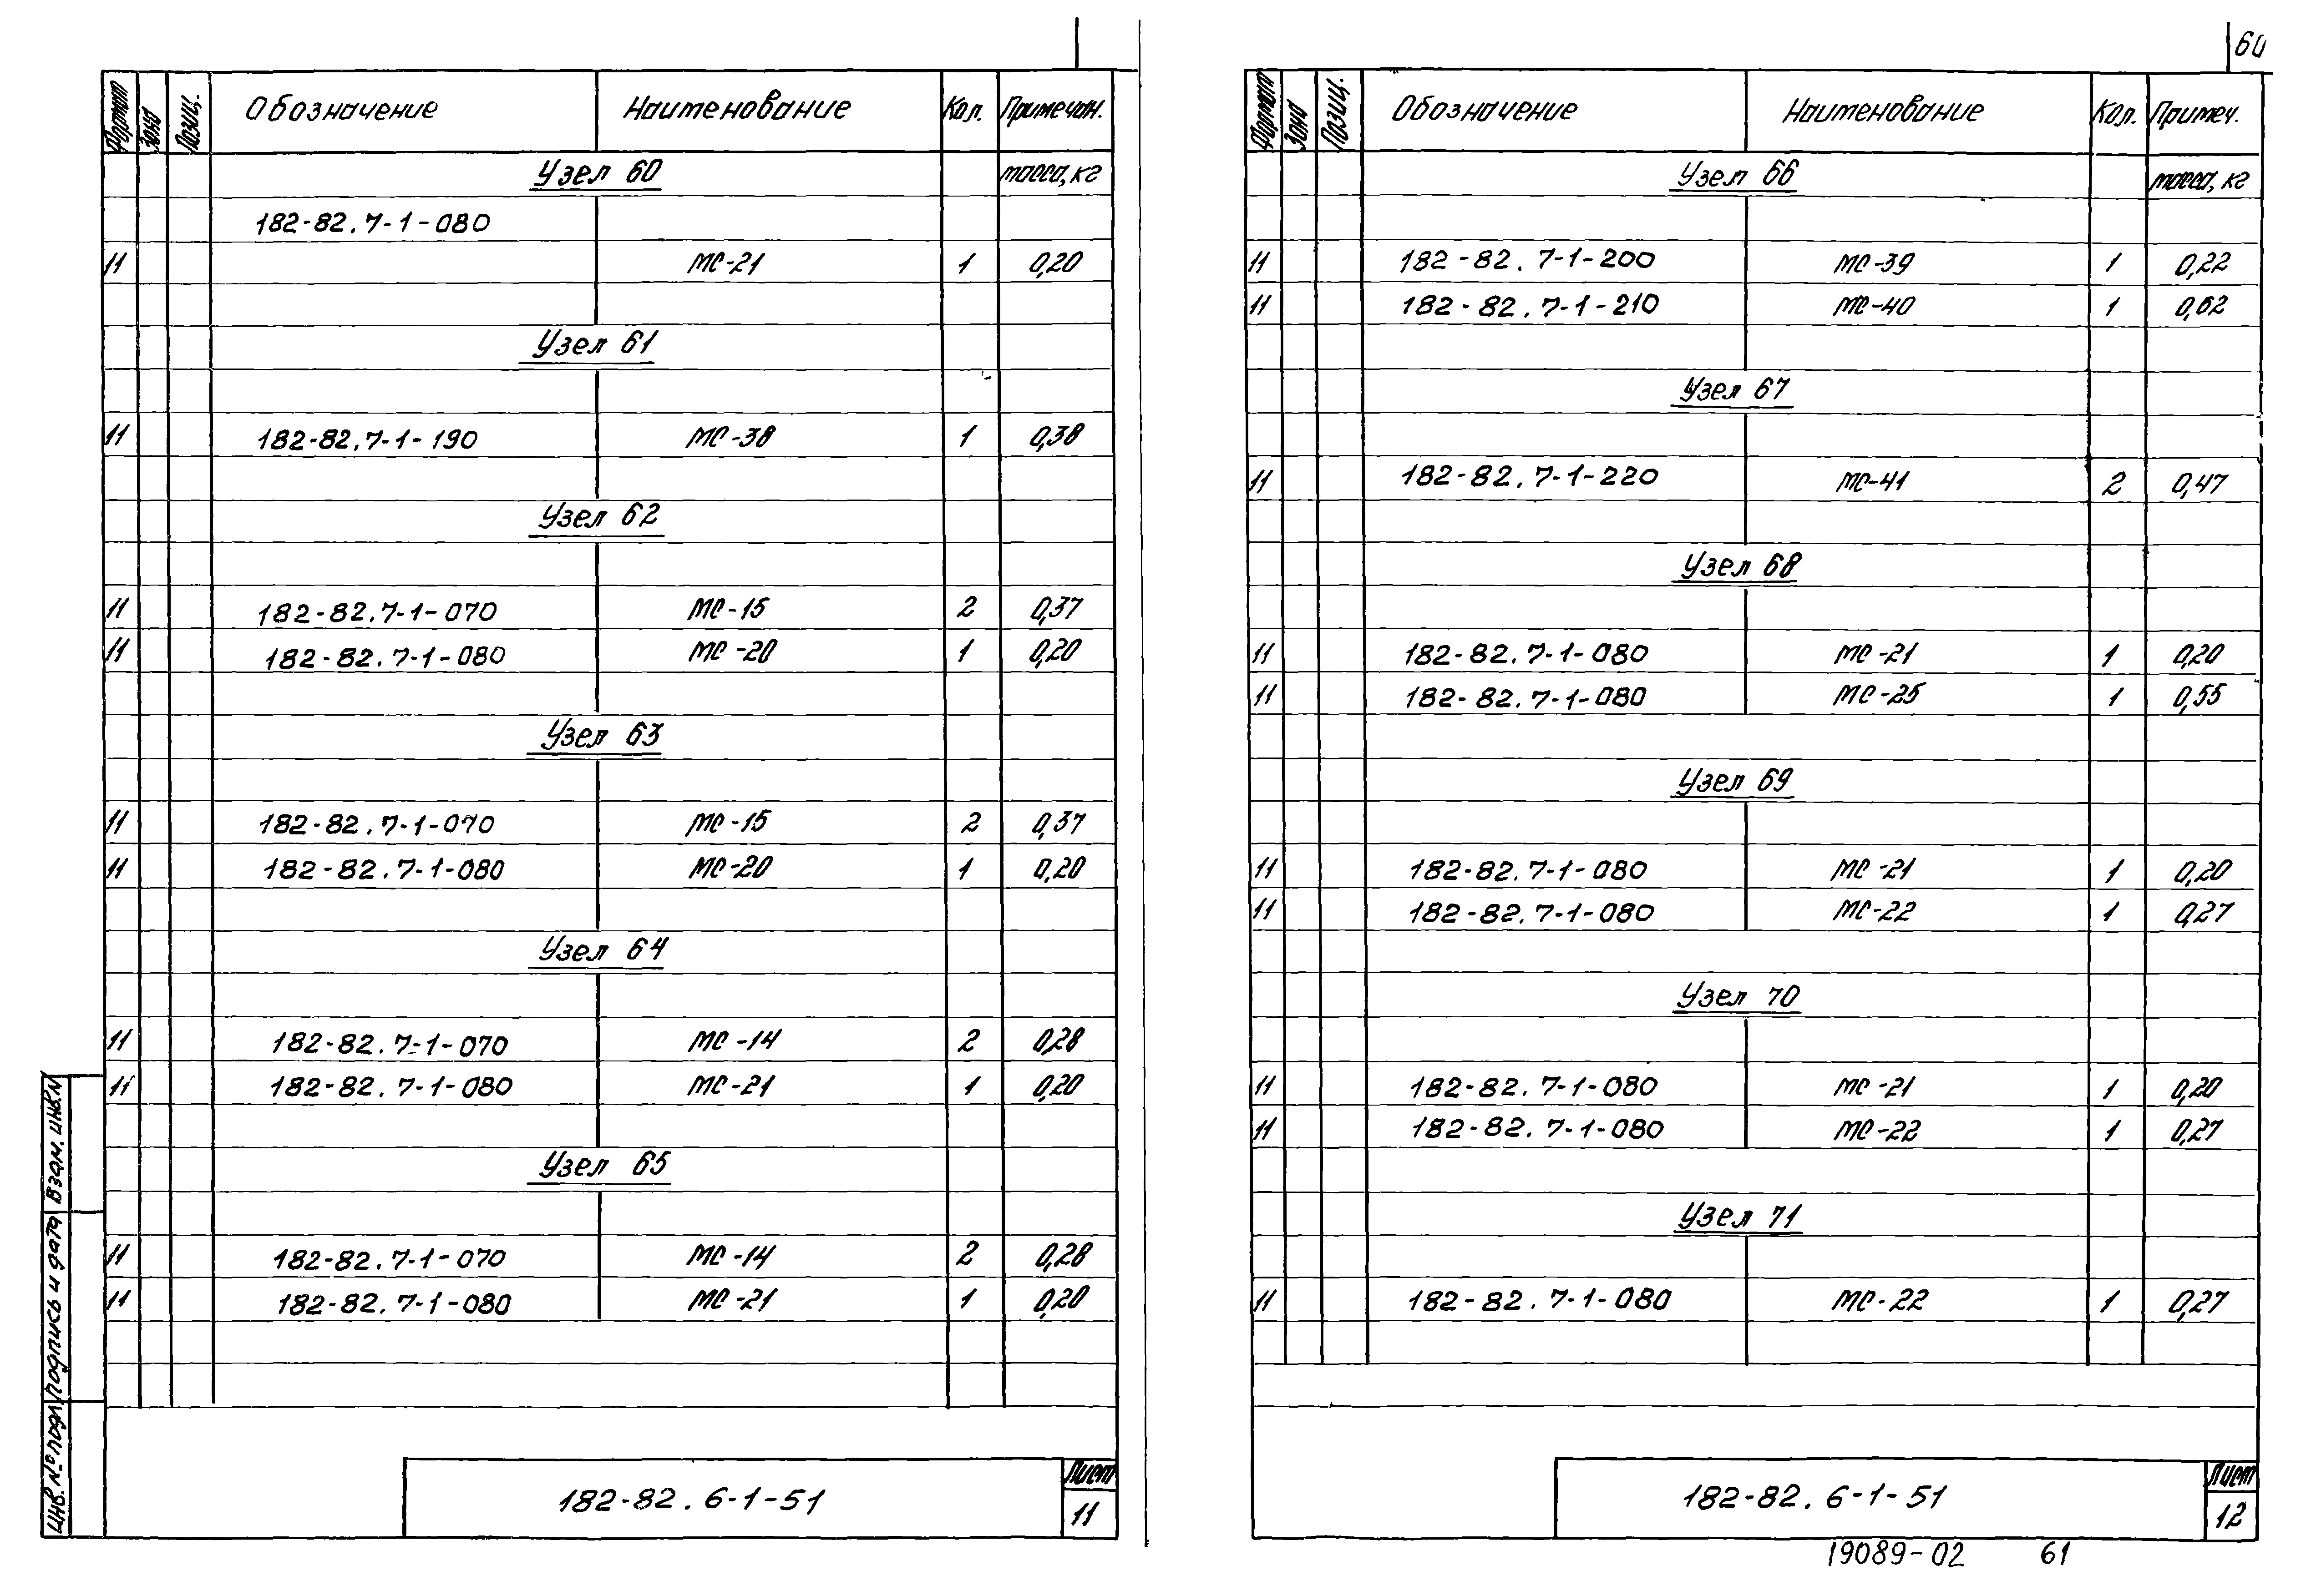 60
Формат Зона Позиц. Обозначение Наименование Кол. Примечан.
Узел 60 масса, кг
182-82.7-1-080
11 МС-21 1 0,20
Узел 61
11 182-82.7-1-190 МС-38 1 0,38
Узел 62
11 182-82.7-1-070 МС-15 2 0,37
11 182-82.7-1-080 МС-20 1 0,20
Узел 63
11 182-82.7-1-070 МС-15 2 0,37
11 182-82.7-1-080 МС-20 1 0,20
Узел 64
11 182-82.7-1-070 МС-14 2 0,28
11 182-82.7-1-080 МС-21 1 0,20
Узел 65
11 182-82.7-1-070 МС-14 2 0,28
11 182-82.7-1-080 МС-21 1 0,20
Инв. № подл Подпись и дата Взам. инв. N
182-82.6-1-51
Лист
11
Формат Зона Позиц. Обозначение Наименование Кол. Примеч.
Узел 66 масса, кг
11 182-82.7-1-200 МС-39 1 0,22
11 182-82.7-1-210 МС-40 1 0,62
Узел 67
11 182-82.7-1-220 МС-41 2 0,47
Узел 68
11 182-82.7-1-080 МС-21 1 0,20
11 182-82.7-1-080 МС-25 1 0,55
Узел 69
11 182-82.7-1-080 МС-21 1 0,20
11 182-82.7-1-080 МС-22 1 0,27
Узел 70
11 182-82.7-1-080 МС-21 1 0,20
11 182-82.7-1-080 МС-22 1 0,27
Узел 71
11 182-82.7-1-080 МС-22 1 0,27
182-82.6-1-51
Лист
12
19089-02 61